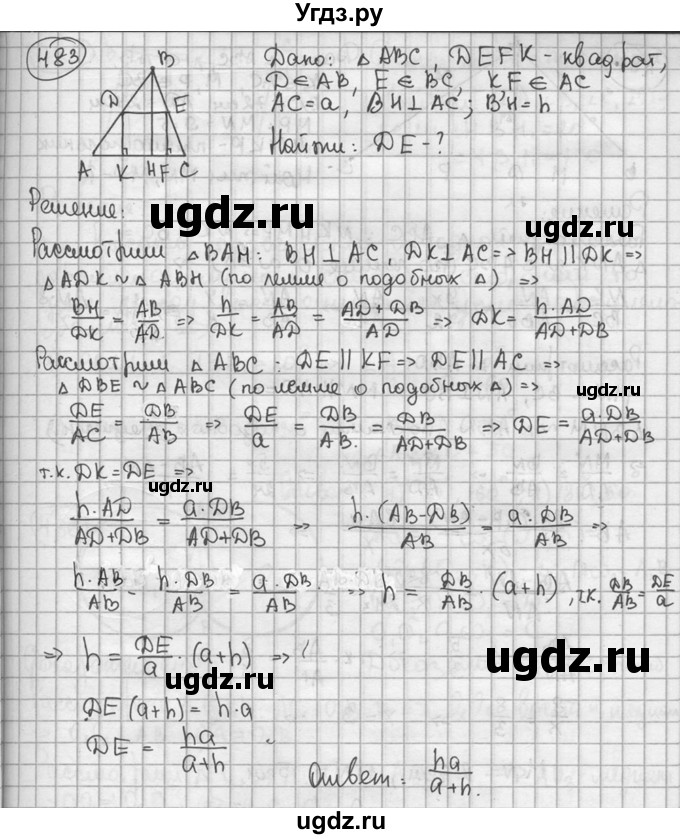 Угдз.ру
483
Дано: △ABC, DEFK - квадрат,
D∈AB, E∈BC, KF∈AC
AC=a, BH⊥AC; BH=h
Найти: DE-?
B
D E
A K H F C
Решение:
ugdz.ru ugdz.ru
Рассмотрим △BAH: BH⊥AC, DK⊥AC=>BH∥DK=>
△ADK~△ABH (по лемме о подобных △) =>
ugdz.ru
BH/DK = AB/AD => h/DK = AB/AD = AD+DB/AD => DK = h·AD/AD+DB
Рассмотрим △ABC: DE∥KF=>DE∥AC=>
△DBE~△ABC (по лемме о подобных △)=>
ugdz.ru
DE/AC = DB/AB => DE/a = DB/AB. = DB/AD+DB => DE = a·DB/AD+DB
т.к. DK=DE =>
ugdz.ru
h·AD/AD+DB = a·DB/AD+DB => h·(AB-DB)/AB = a·DB/AB =>
h·AB/AB - h·DB/AB = a·DB/AB => h = DB/AB·(a+h), т.к. DB/AB = DE/a
=> h = DE/a·(a+h) =>
ugdz.ru ugdz.ru
DE(a+h) = h·a
DE = ha/a+h
ugdz.ru
Ответ: ha/a+h.
ugdz.ru